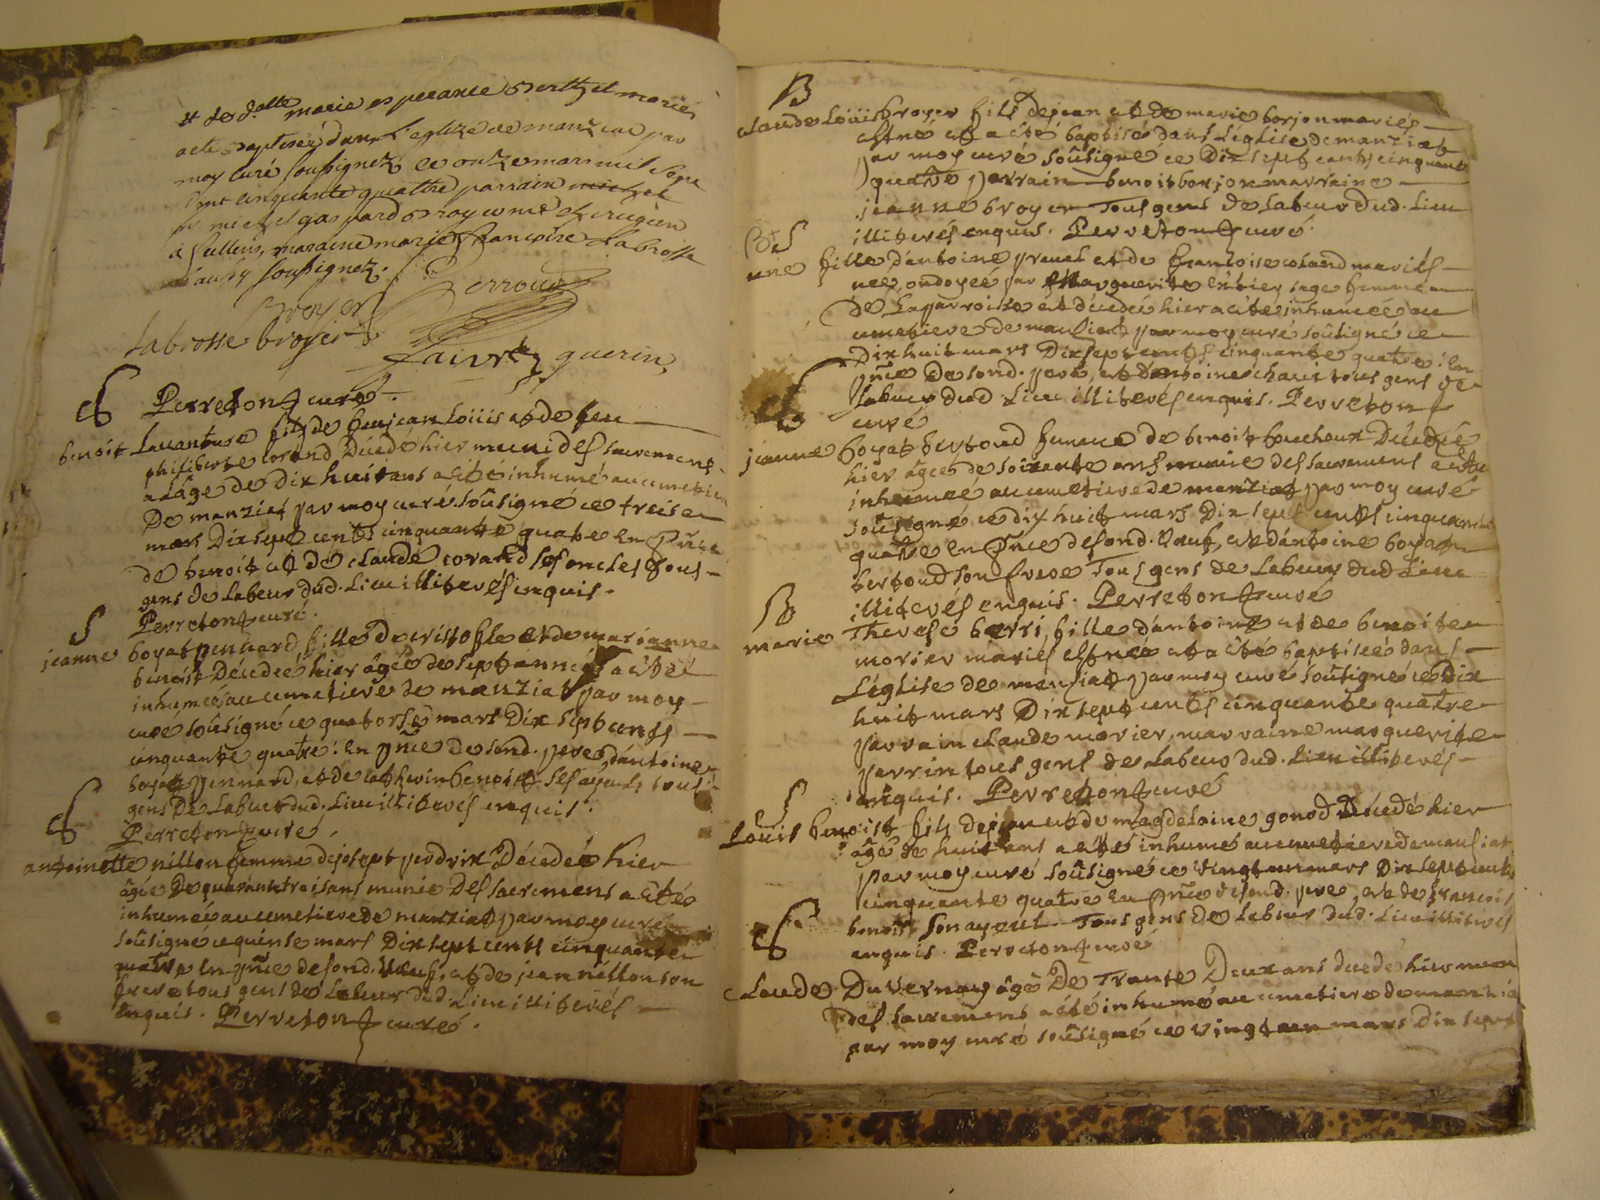 et de d.elle marie esperance mariés
a ete baptisé dans l'eglize de manziat par
moy curé soussignez ce onze mars mil sept
cent cinquante quatthe parrain michel
michel gaspard broyer chirugien
marraine marie françoise Labrosse
soussignez.
Broyer
Labrosse broyer guerin
Perreton curé.
benoit Lavanture fils de feu jean Loüis et de feu
philiberte corand Décédé hier muni des sacremens
a L'âge de Dix huit ans a été inhumé au cimetiere
De manziat par moy curé soûsigné ce treise
mars Dix sept cents cinquante quatre En Pñce
de benoit et de claude corand ses oncles tous
gens de Labeur dud. Lieu illiterés enquis.
Perreton curé.
S
jeanne boyat pennard, fille De cristofle et de marianne
benoit Décedée hier âgée de sept années a été
inhumée au cimetiere de manziat par moy
curé soûsigné ce quatorse mars Dix sept cents
cinquante quatre: En pñce de sond. pere, d'antoine
boyat pennard, et de benoit ses ayeuls tous
gens De Labeur dud. Lieu illiterés enquis.
Perreton curé.
antoinette nillon femme de josept perdrix Décedée hier
âgée De quarante trois ans munie Des sacremens a été
inhumée au cimetiere de manziat par moy curé
soûsigné ce quinse mars Dix sept cents cinquante
quatre En pñce de sond. Veuf, et de jean nillon son
frere tous gens de Labeur dud. Lieu illiterés
enquis. Perreton curé.
B
claude Loüis broyer fils de jean et de marie borjon mariés
est né et a été baptisé dans L'église de manziat
par moy curé soûsigné ce Dix sept cents cinquante
quatre parrain benoit borjon marraine
jeanne broyer Tous gens de Labeur dud. Lieu
illiterés enquis. Perreton curé.
une fille d'antoine preval et de francoise coland mariés
née, ondoyée par Marguerite sage femme
De La parroisse et décédée hier a été inhumée au
cimetiere de mansiat par moy curé soûsigné ce
Dix huit mars Dix sept cents cinquante quatre: En
pñce De sond. pere, et D'antoine tous gens de
Labeur dud. Lieu illiterés enquis. Perreton
curé
jeanne boyat bertoud femme de benoit boucheux Décedée
hier âgée de soixante ans munie des sacremens a été
inhumée au cimetiere de manziat par moy curé
soûsigné ce dix huit mars Dix sept cents cinquante
quatre en pñce de sond. Veuf, et d'antoine boyat
bertoud son frere Tous gens de Labeur dud Lieu
illiterés enquis. Perreton curé
B
marie Therese berri, fille d'antoine et de benoite
morier mariés est née et a été baptisée dans
L'église de mansiat par moy curé soûsigné ce Dix
huit mars Dix sept cents cinquante quatre
parrain claude morier, marraine marguerite
perrin tous gens de Labeur dud. Lieu illiterés
enquis. Perreton curé
S
Louis benoist fils de jean et de magdelaine gonod Décédé hier
âgé de huit ans a été inhumé au cimetiere de mansiat
par moy curé soûsigné ce vingt un mars Dix sept cents
cinquante quatre en pñce de sond. pere, et de francois
benoist son ayeul Tous gens de Labeur dud. Lieu illiterés
enquis. Perreton curé
Claude Duvernay âgé De Trante Deux ans décédé hier muni
des sacremens a été inhumé au cimetiere de manzia
par moy curé soûsigné ce vingt un mars Dix sept